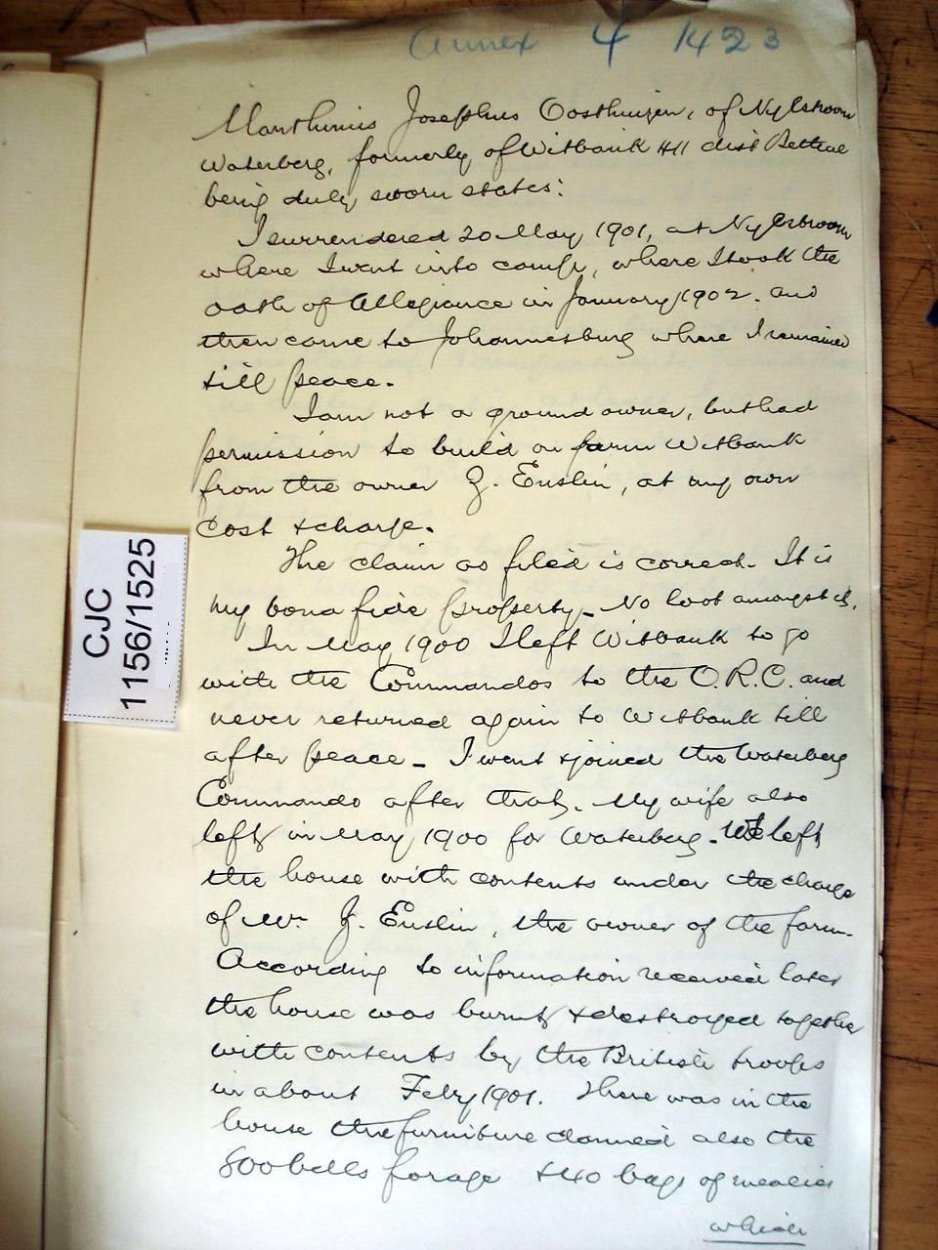 Annex 4 1423
Marthinus Josephus Oosthuizen, of Nylstroom
Waterberg, formerly of Witbank 411 dist Bethal
being duly sworn states:
I surrendered 20 May 1901, at Nylstroom
where I went into camp, where I took the
oath of Allegiance in January 1902. and
then came to Johannesburg where I remained
till peace.
I am not a ground owner, but had
permission to build on farm Witbank
from the owner J. Enslin, at my own
cost & charge.
The claim as filed is correct. It is
my bona fide property. No loot amongst it.
In May 1900 I left Witbank to go
with the Commandos to the O.R.C. and
never returned again to Witbank till
after peace - I went & joined the Waterberg
Commando after that. My wife also
left in May 1900 for Waterberg. We left
the house with contents under the charge
of Mr. J. Enslin, the owner of the farm.
According to information received later
the house was burnt & destroyed together
with contents by the British troops
in about Feby 1901. There was in the
house the furniture claimed also the
800 bdls forage & 40 bags of mealies
which
CJC
1156/1525